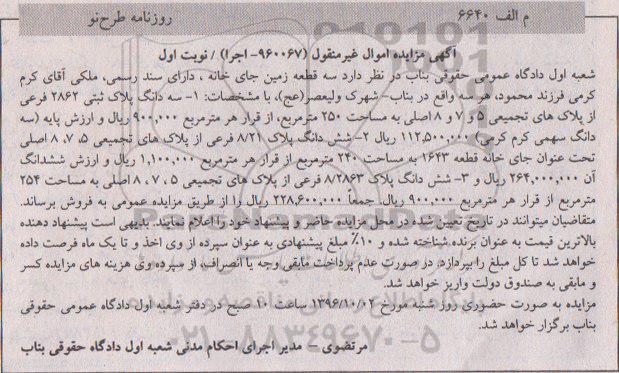 م الف ۶۶۴۰
روزنامه طرح‌نو
آگهی مزایده اموال غیرمنقول (۹۶۰۰۶۷- اجرا) / نوبت اول
شعبه اول دادگاه عمومی حقوقی بناب در نظر دارد سه قطعه زمین جای خانه ، دارای سند رسمی، ملکی آقای کرم
کرمی فرزند محمود، هر سه واقع در بناب- شهرک ولیعصر(عج)، با مشخصات: ۱- سه دانگ پلاک ثبتی ۲۸۶۲ فرعی
از پلاک های تجمیعی ۵ و ۷ و ۸ اصلی به مساحت ۲۵۰ مترمربع، از قرار هر مترمربع ۹۰۰,۰۰۰ ریال و ارزش پایه (سه
دانگ سهمی کرم کرمی) ۱۱۲,۵۰۰,۰۰۰ ریال ۲- شش دانگ پلاک ۸/۲۱ فرعی از پلاک های تجمیعی ۵، ۷، ۸ اصلی
تحت عنوان جای خانه قطعه ۱۶۴۳ به مساحت ۲۴۰ مترمربع از قرار هر مترمربع ۱,۱۰۰,۰۰۰ ریال و ارزش ششدانگ
آن ۲۶۴,۰۰۰,۰۰۰ ریال و ۳- شش دانگ پلاک ۸/۲۸۶۳ فرعی از پلاک های تجمیعی ۵ ، ۷ ، ۸ اصلی به مساحت ۲۵۴
مترمربع از قرار هر مترمربع ۹۰۰,۰۰۰ ریال، جمعاً ۲۲۸,۶۰۰,۰۰۰ ریال را از طریق مزایده عمومی به فروش برساند.
متقاضیان میتوانند در تاریخ تعیین شده در محل مزایده حاضر و پیشنهاد خود را اعلام نمایند. بدیهی است پیشنهاد دهنده
بالاترین قیمت به عنوان برنده شناخته شده و ۱۰٪ مبلغ پیشنهادی به عنوان سپرده از وی اخذ و تا یک ماه فرصت داده
خواهد شد تا کل مبلغ را بپردازد. در صورت عدم پرداخت مابقی وجه یا انصراف، از سپرده وی هزینه های مزایده کسر
و مابقی به صندوق دولت واریز خواهد شد.
مزایده به صورت حضوری روز شنبه مورخ ۱۳۹۶/۱۰/۰۲ ساعت ۱۰ صبح در دفتر شعبه اول دادگاه عمومی حقوقی
بناب برگزار خواهد شد.
مرتضوی – مدیر اجرای احکام مدنی شعبه اول دادگاه حقوقی بناب
ParsNamadData
۰۲۱-۸۸۳۴۹۶۷۰-۵